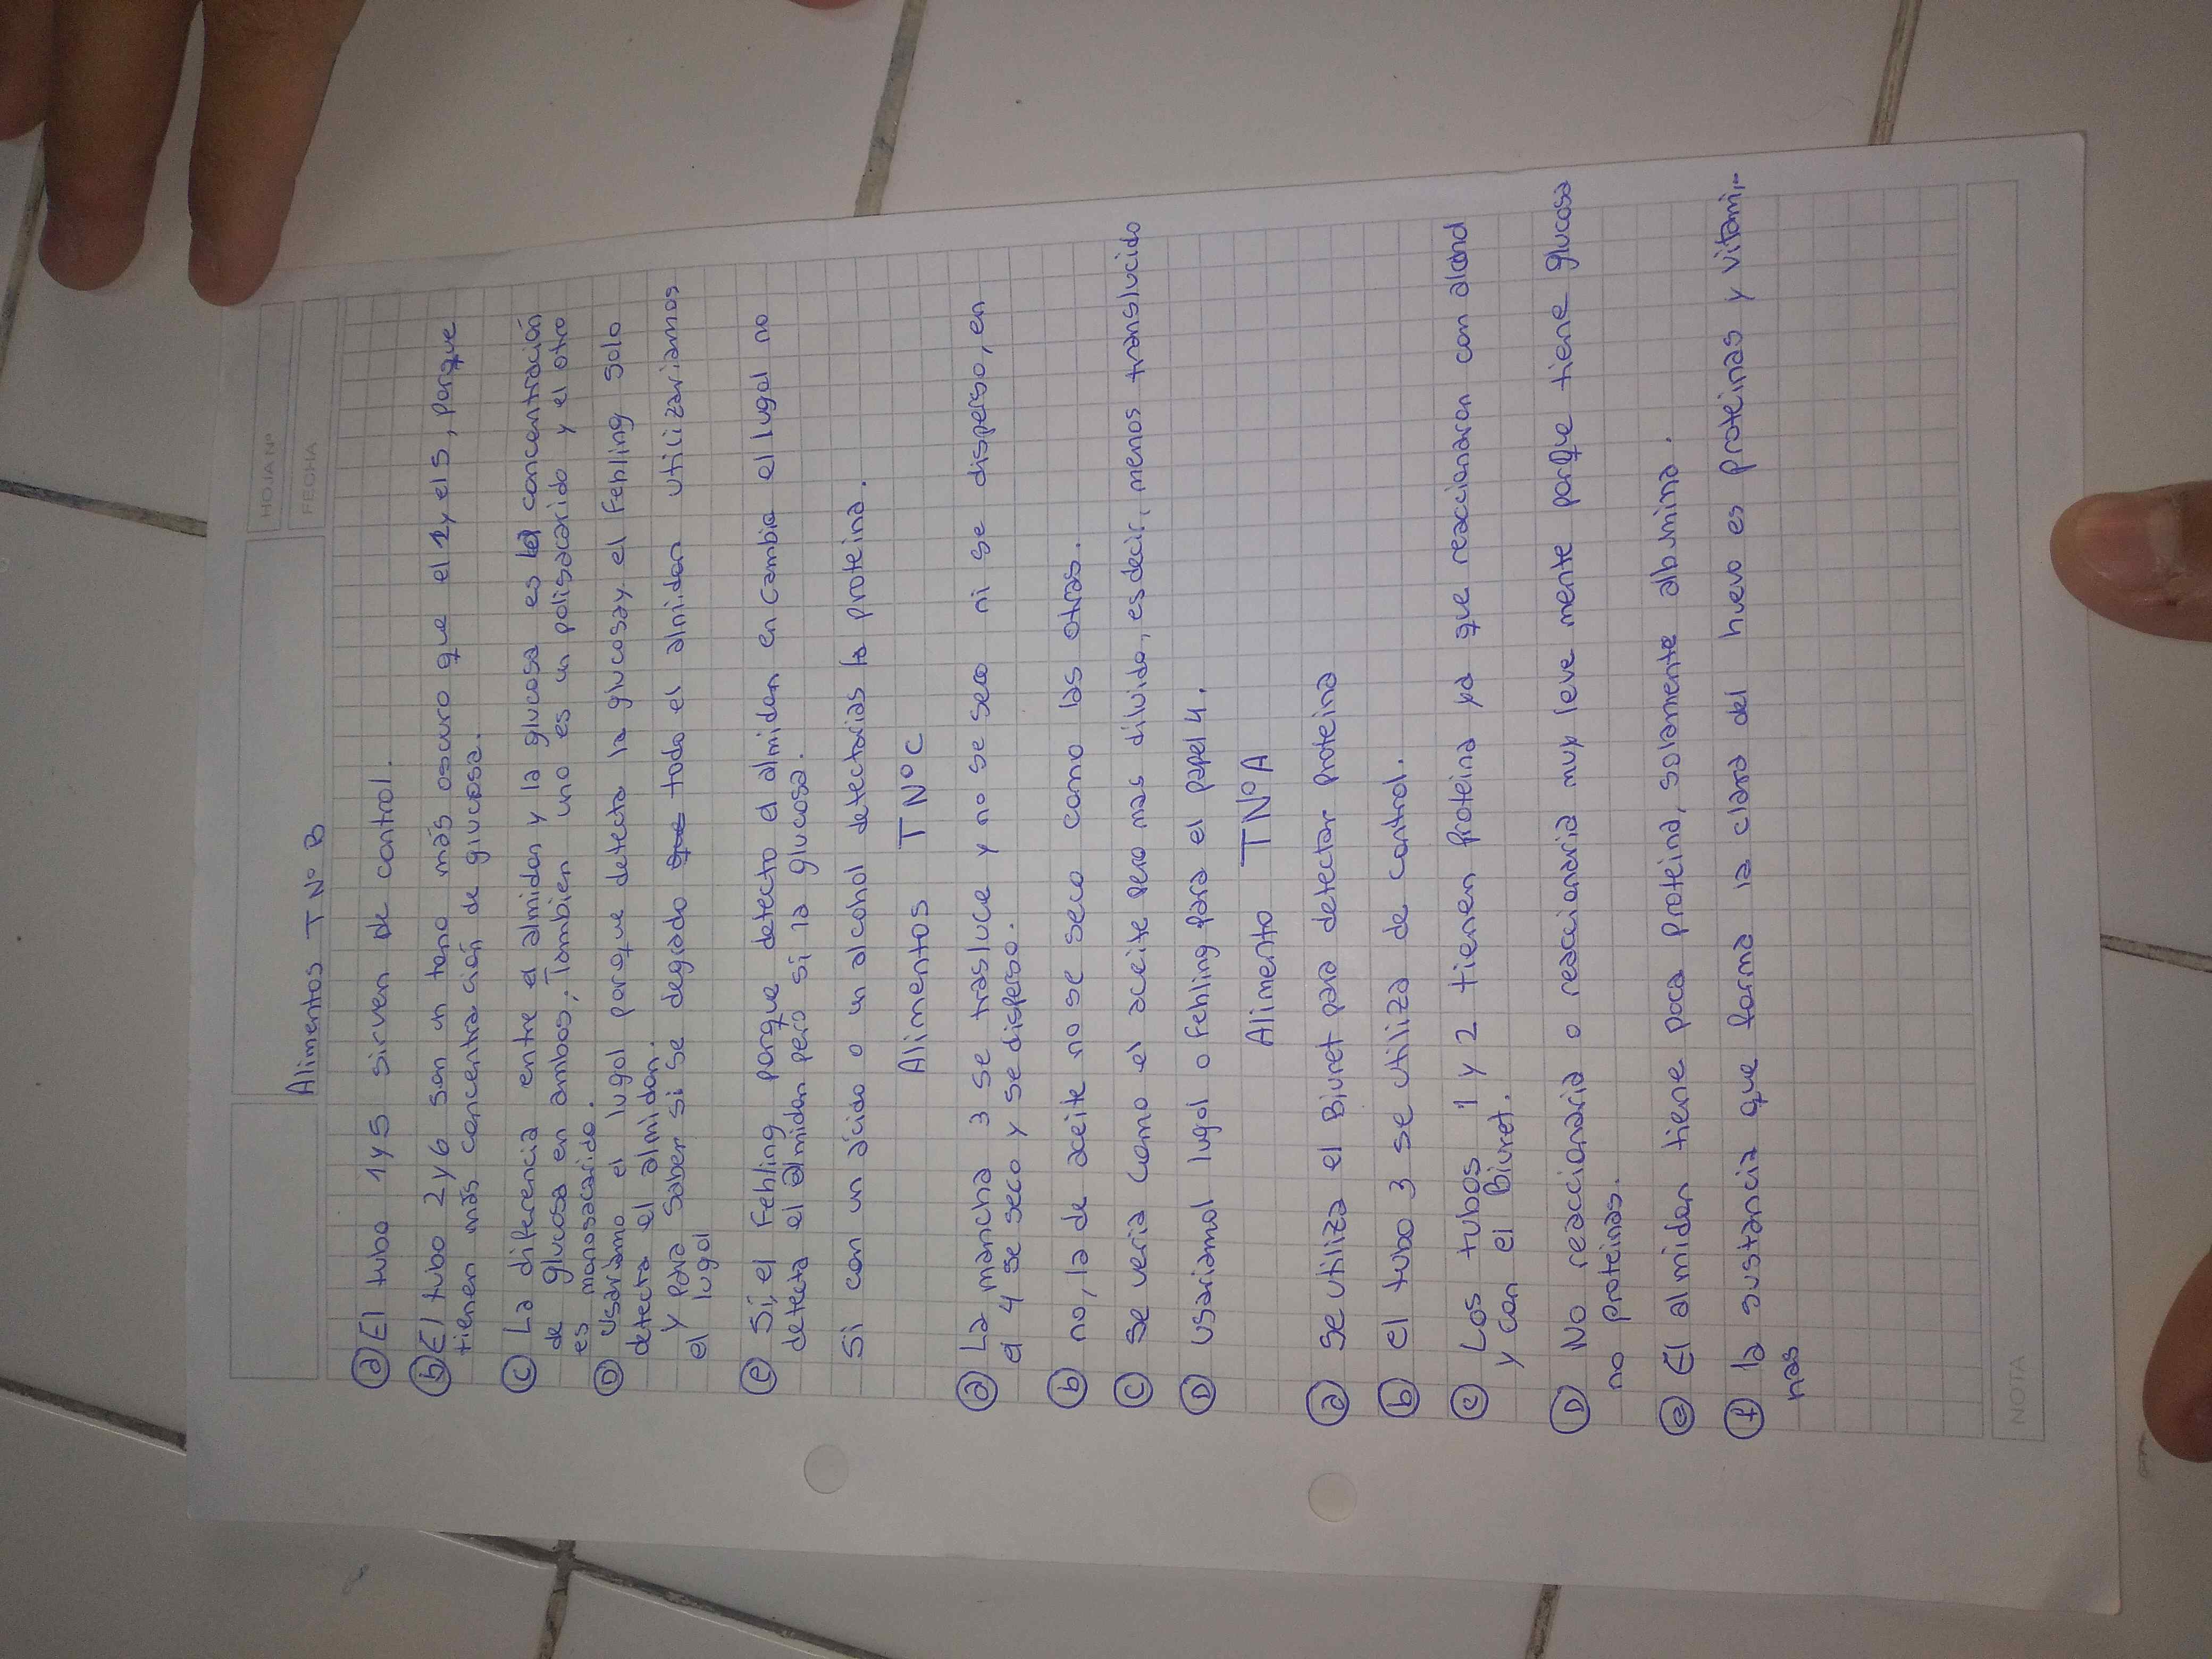 HOJA Nº
FECHA
Alimentos TNº B
a El tubo 1 y 5 sirven de control.
b El tubo 2 y 6 son un tono más oscuro que el 1 y el 5, porque
tienen más concentración de glucosa.
c La diferencia entre el almidon y la glucosa es la concentración
de glucosa en ambos, Tambien uno es un polisacarido y el otro
es monosacarido.
D Usariamo el lugol porque detecta la glucosa y el Fehling solo
detecta el almidon.
y para saber si se degrado que todo el almidon utilizariamos
el lugol
e Si, el Fehling porque detecto el almidon en cambio el lugol no
detecta el almidon pero si la glucosa.
Si con un ácido o un alcohol detectarias la proteina.
Alimentos TNº C
a La mancha 3 se trasluce y no se seco ni se disperso, en
el 4 se seco y se disperso.
b no, la de aceite no se seco como las otras.
c se veria como el aceite pero mas diluido, es decir, menos translucido
D usariamol lugol o Fehling para el papel 4.
Alimento TNº A
a se utiliza el Biuret para detectar proteina
b el tubo 3 se utiliza de control.
c Los tubos 1 y 2 tienen proteina ya que reaccionaron con alcohol
y con el Biuret.
D No reaccionaria o reaccionaria muy leve mente porque tiene glucosa
no proteinas.
e El almidon tiene poca proteina, solamente albumina.
f la sustancia que forma la clara del huevo es proteinas y vitami-
nas
NOTA